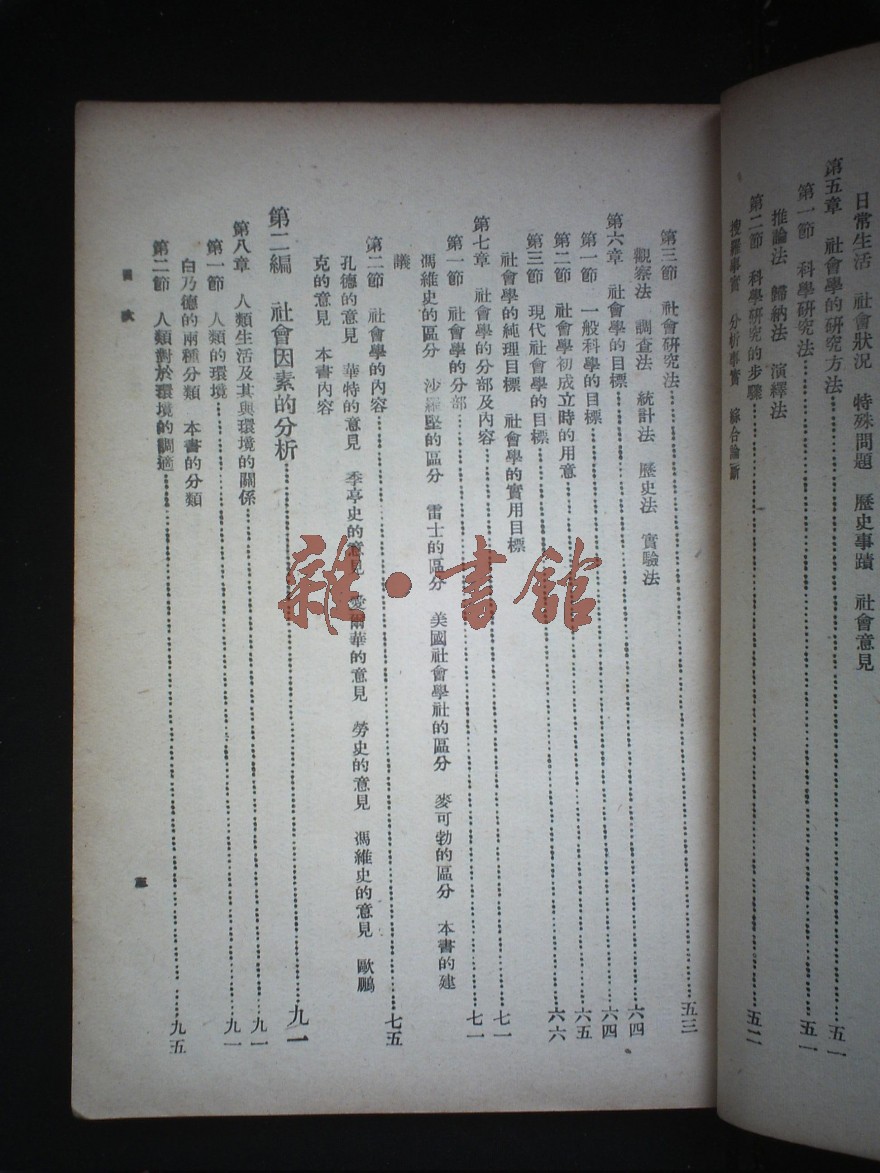 日常生活 社會狀況 特殊問題 歷史事蹟 社會意見
第五章 社會學的研究方法……五一
第一節 科學研究法……五一
推論法 歸納法 演繹法
第二節 科學研究的步驟……五二
搜羅事實 分析事實 綜合論斷
第三節 社會研究法……五三
觀察法 調查法 統計法 歷史法 實驗法
第六章 社會學的目標……六四
第一節 一般科學的目標……六四
第二節 社會學初成立時的用意……六五
第三節 現代社會學的目標……六六
社會學的純理目標 社會學的實用目標
第七章 社會學的分部及內容……七一
第一節 社會學的分部……七一
馮維史的區分 沙羅堅的區分 雷士的區分 美國社會學社的區分 麥可勃的區分 本書的建
議
第二節 社會學的內容……七五
孔德的意見 華特的意見 季亭史的意見 愛爾華的意見 勞史的意見 馮維史的意見 歐鵬
克的意見 本書內容
第二編 社會因素的分析……九一
第八章 人類生活及其與環境的關係……九一
第一節 人類的環境……九一
白乃德的兩種分類 本書的分類
第二節 人類對於環境的調適……九五
目次
雜·書館